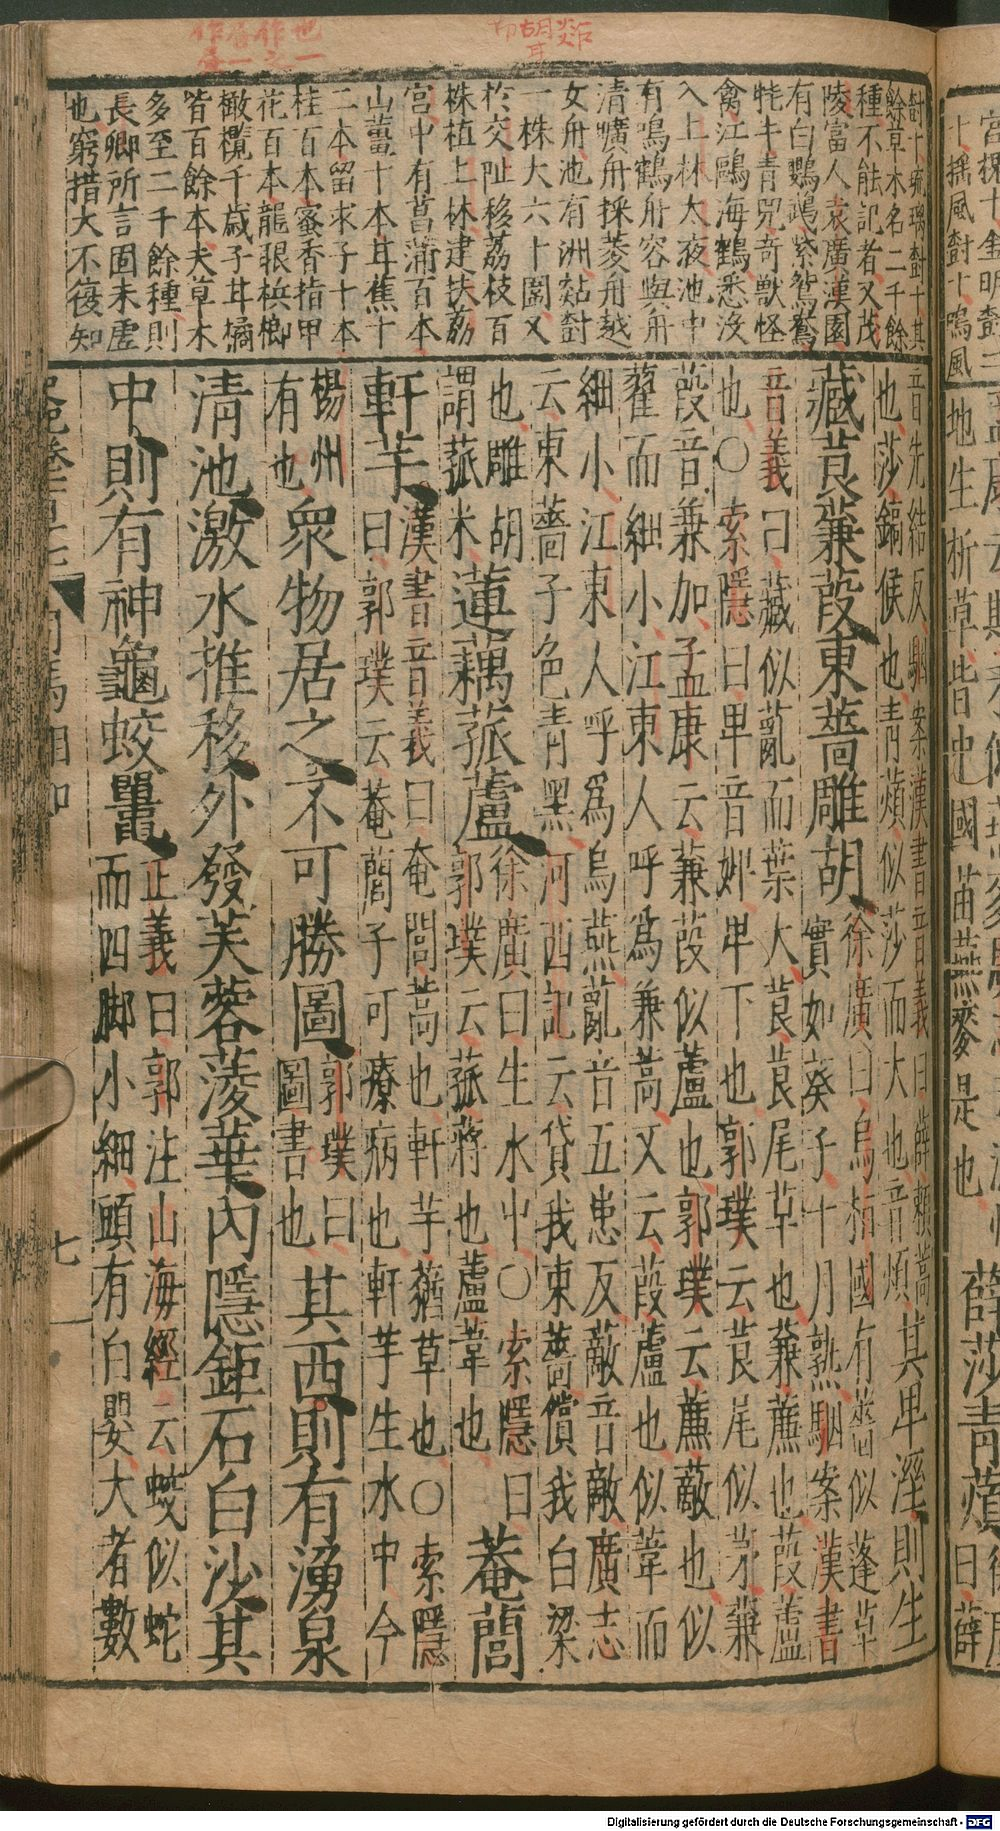 尌十琉璃尌十其
餘草木名二千餘
種不能記者又茂
陵富人袁廣漢園
有白鸚鵡紫鴛鴦
牦牛青兕奇獸怪
禽江鷗海鶴悉沒
入上林大夜池中
有鳴鶴舟容與舟
清曠舟採菱舟越
女舟池有洲㷋尌
一株大六十圍又
柞交阯移荔枝百
株植上林建扶荔
宮中有菖蒲百本
山薑十本甘蕉十
二本留求子十本
桂百本蜜香指甲
花百本龍眼檳榔
橄欖千歲子甘橘
皆百餘本夫草木
多至二千餘種則
長卿所言固未虛
也窮措大不復知
音先結反駰案漢書音義曰薜賴蒿
也莎鎬侯也青薠似莎而大也音煩
其卑溼則生
藏莨蒹葭東薔雕胡
徐廣曰烏桓國有薔似蓬草
實如葵子十月熟駰案漢書
音義曰藏似薍而葉大莨莨尾草也蒹薕也葭蘆
也○索隱曰卑音婢卑下也郭璞云莨尾似茅蒹
葭音兼加孟康云蒹葭似蘆也郭璞云薕薂也似
雚而細小江東人呼為蒹蒿又云葭蘆也似葦而
細小江東人呼為烏蓲薍音五患反薂音敵廣志
云東薔子色青黑河西記云貸我東薔償我白梁
也雕胡
謂菰米
蓮藕菰蘆
徐廣曰生水中○索隱曰
郭璞云菰蔣也蘆葦也
菴䕡
軒芋
漢書音義曰奄閭蒿也軒芋蕕草也○索隱
曰郭璞云菴䕡子可療病也軒芋生水中今
楊州
有也
衆物居之不可勝圖
郭璞曰
圖書也
其西則有湧泉
清池激水推移外發芙蓉菱華內隱鉅石白沙其
中則有神龜蛟鼉
正義曰郭注山海經云蛟似蛇
而四脚小細頭有白嬰大者數
七
Digitalisierung gefördert durch die Deutsche Forschungsgemeinschaft - DFG